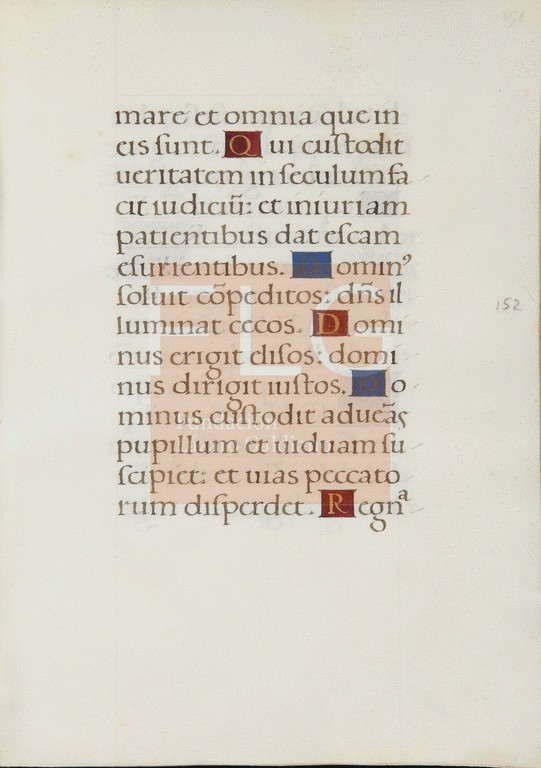 mare et omnia que in
eis sunt. Qui custodit
ueritatem in seculum fa
cit iudiciū: et iniuriam
patientibus dat escam
esurientibus. Dominꝰ
soluit cōpeditos: dn̄s il
luminat cecos. Domi
nus erigit elisos: domi
nus dirigit iustos. Do
minus custodit aduēas
pupillum et uiduam su
scipiet: et uias peccato
rum disperdet. Regnᵃ
152
FLG
Fundación